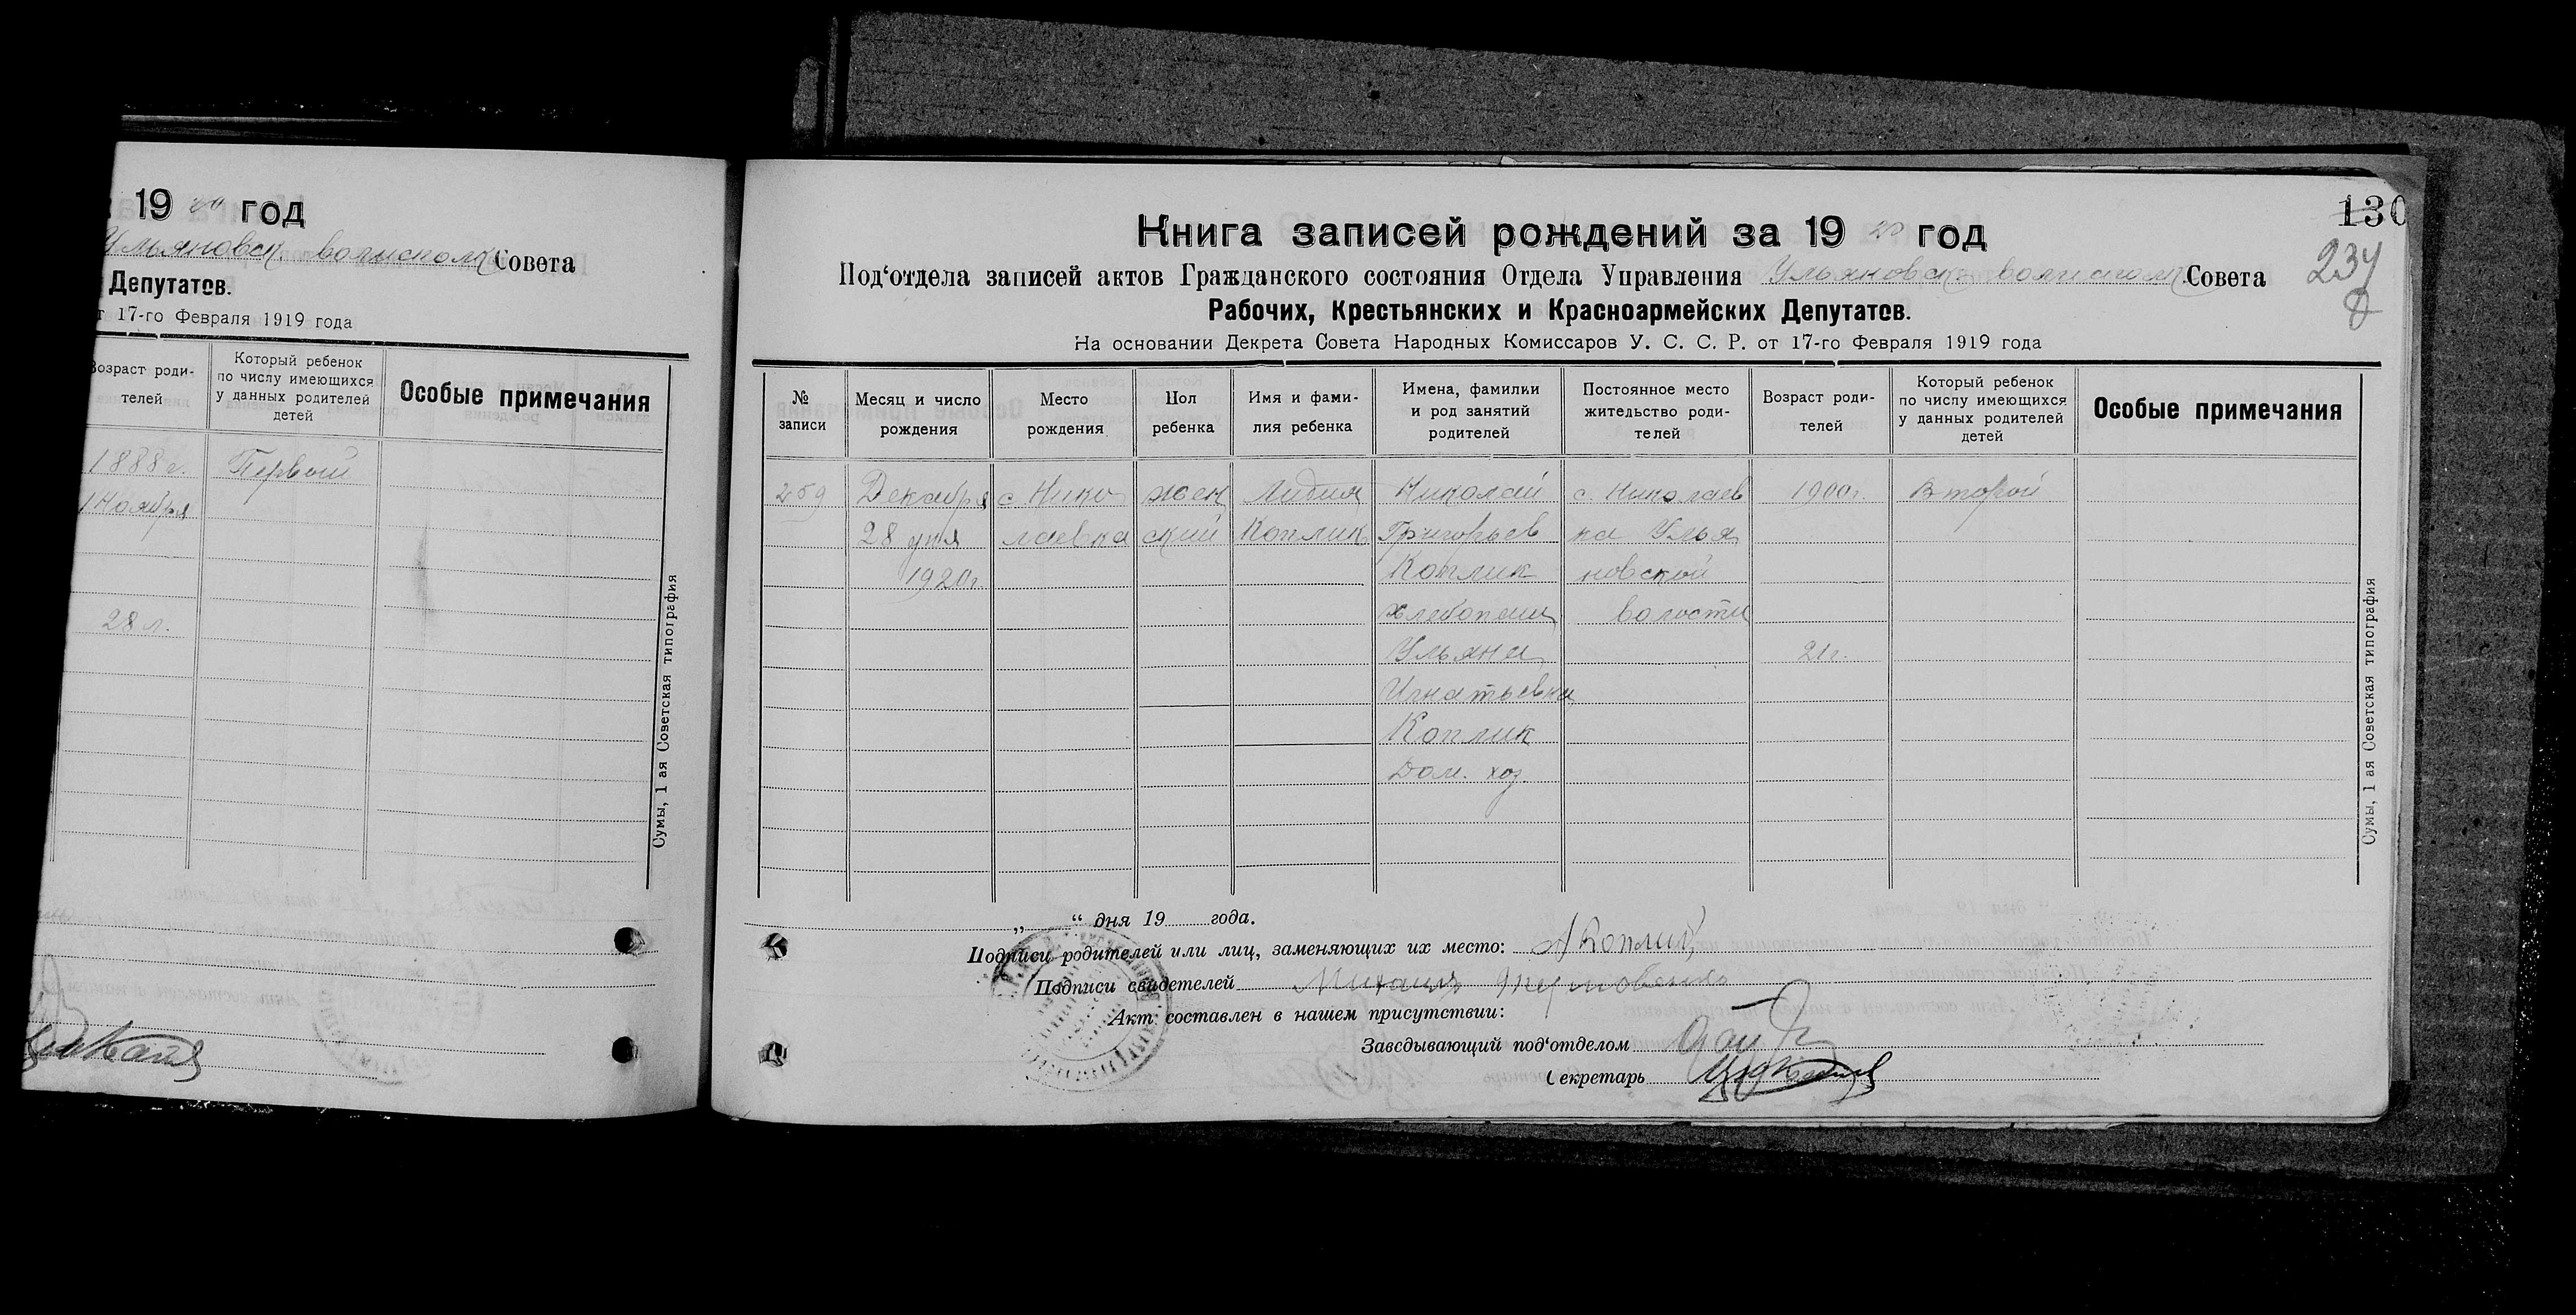 19 20 год
Ульяновск. волисполк Совета
Депутатов.
т 17-го Февраля 1919 года
Возраст роди-
телей
Который ребенок
по числу имеющихся
у данных родителей
детей
Особые примечания
1888 г. Первый
1 Ноября
28 л.
Сумы, 1 ая Советская типография
130
234
Книга записей рождений за 19 20 год
Под‘отдела записей актов Гражданского состояния Отдела Управления Ульяновск. волисполк. Совета
Рабочих, Крестьянских и Красноармейских Депутатов.
На основании Декрета Совета Народных Комиссаров У. С. С. Р. от 17-го Февраля 1919 года
№
записи
Месяц и число
рождения
Место
рождения
Пол
ребенка
Имя и фами-
лия ребенка
Имена, фамилии
и род занятий
родителей
Постоянное место
жительство роди-
телей
Возраст роди-
телей
Который ребенок
по числу имеющихся
у данных родителей
детей
Особые примечания
259 Декабря с. Нико жен Лидия Николай с. Николаев 1900 г. Второй
28 дня лаевка ский Коплик Григорьев ка Улья
1920 г. Коплик новской
хлебопаш волости
Ульяна 21 г.
Игнатьевна
Коплик
Дом. хоз.
Сумы, 1 ая Советская типография
„ “ дня 19 года.
Подписи родителей или лиц, заменяющих их место: Коплик
Подписи свидетелей Михаил
Акт составлен в нашем присутствии:
Заведывающий под‘отделом
Секретарь